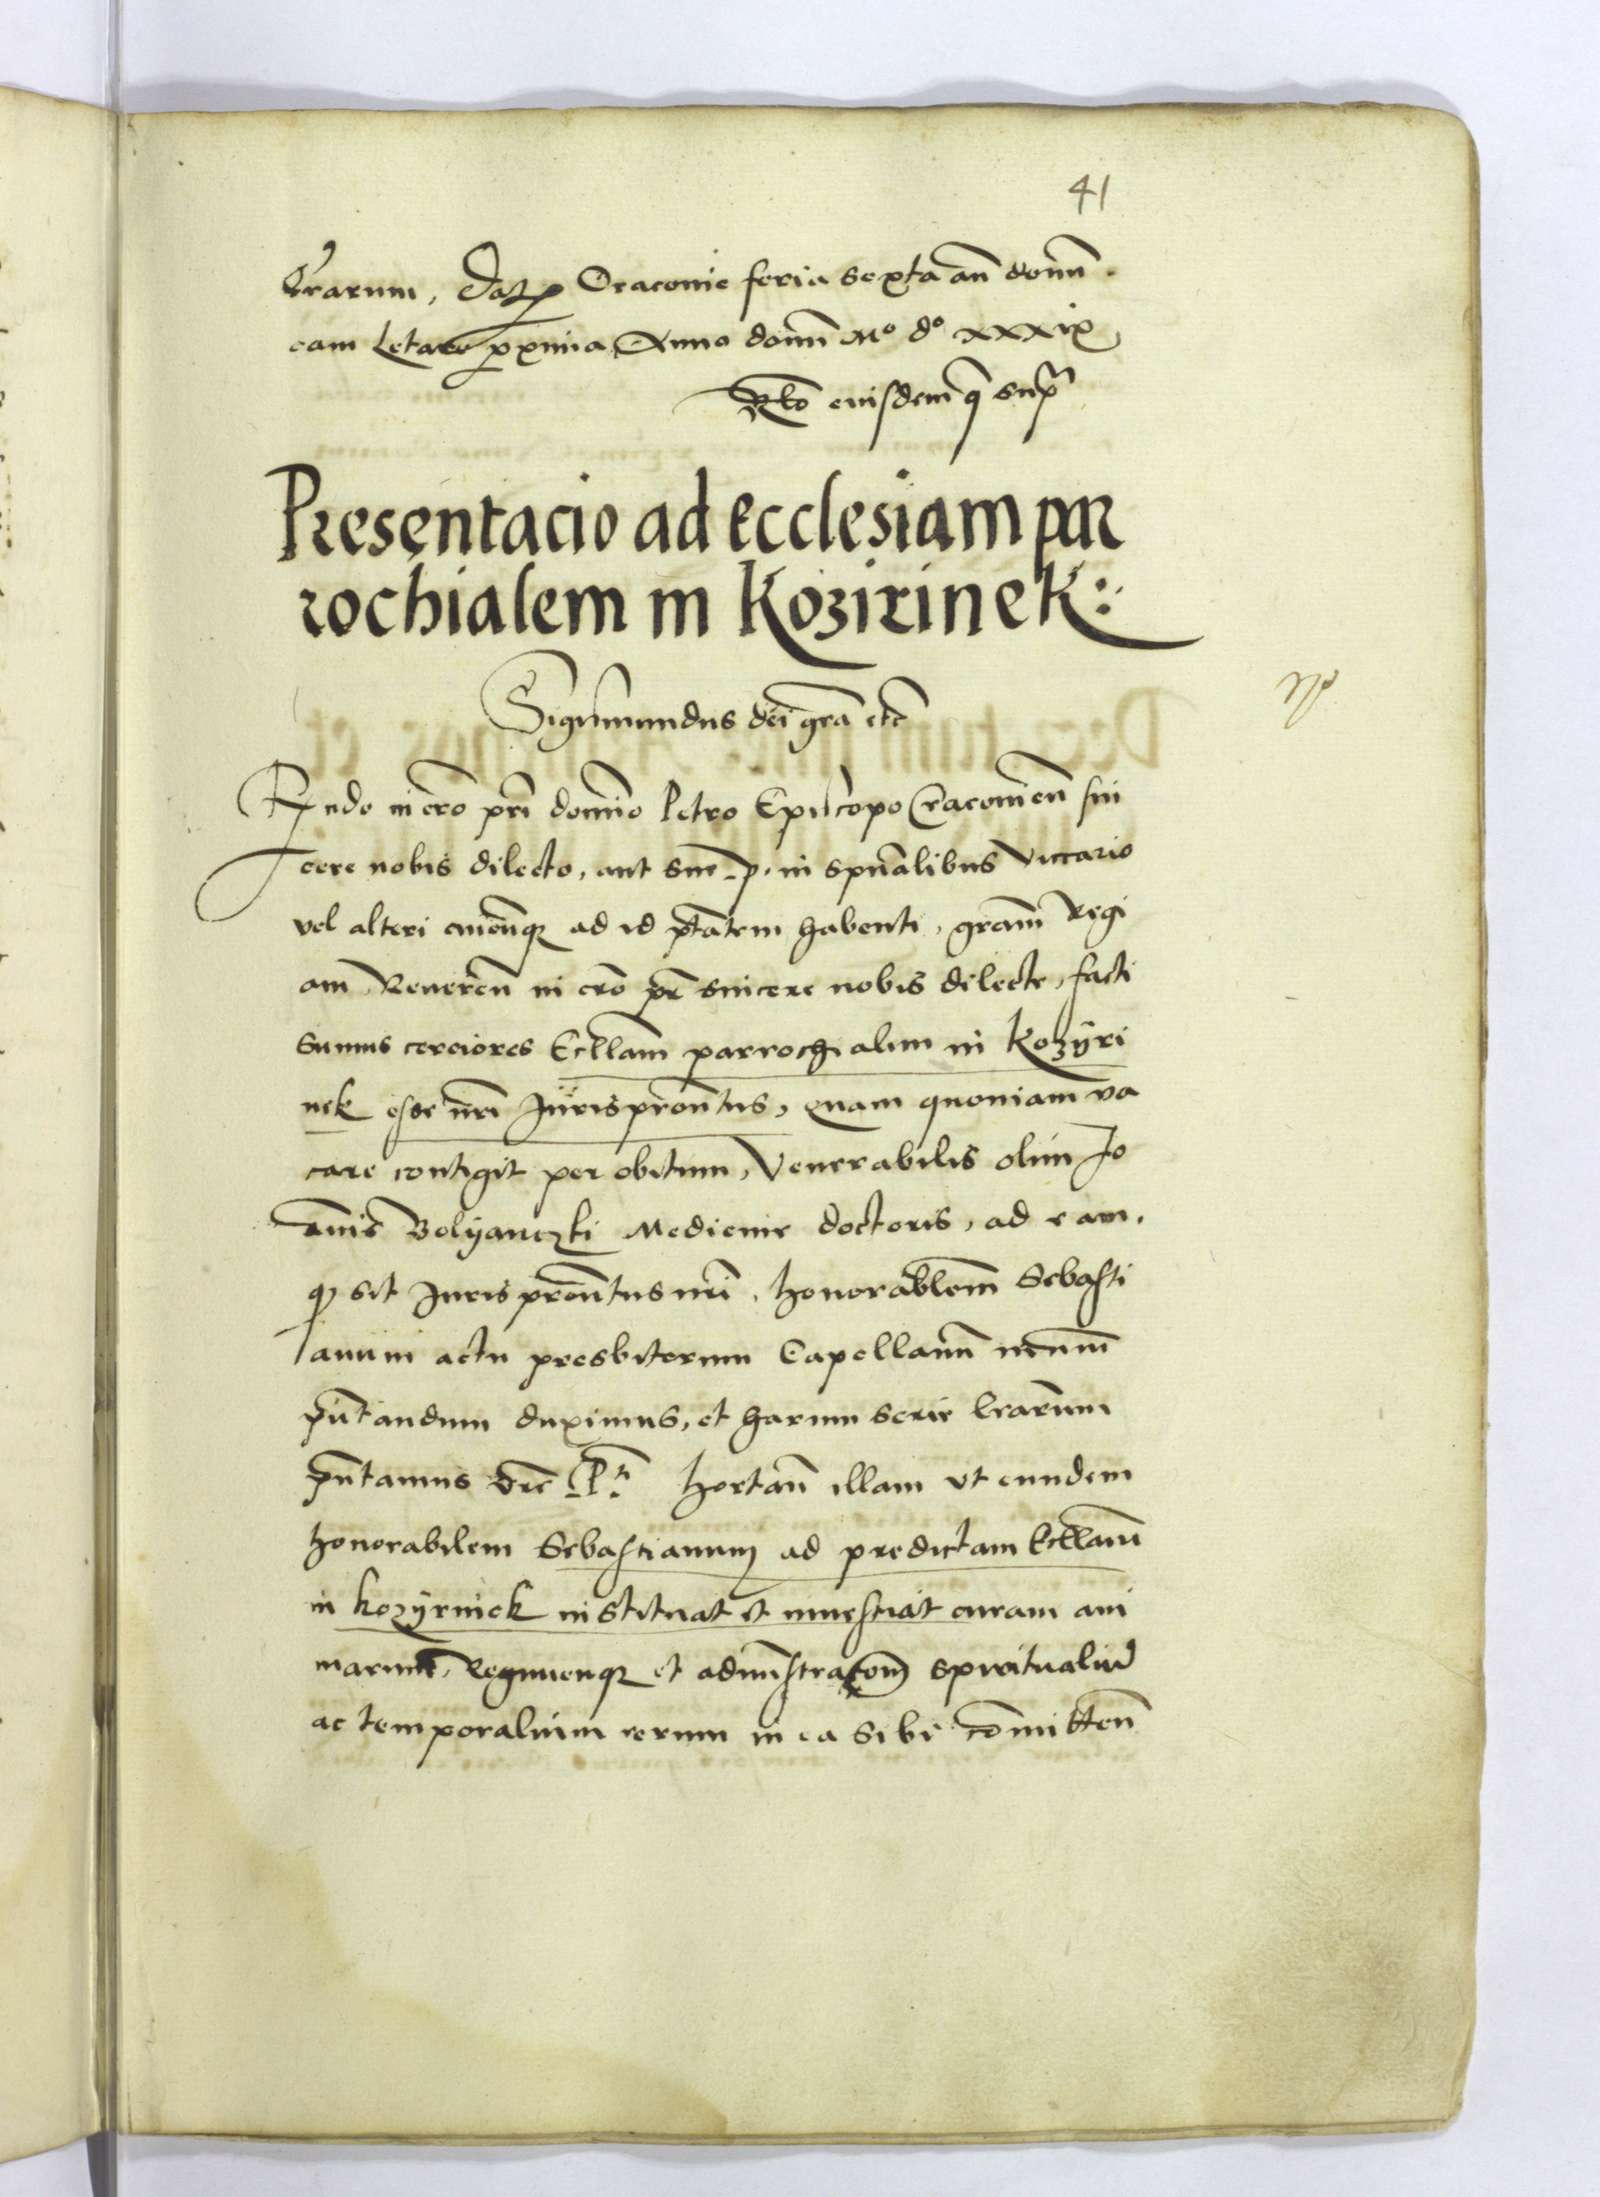 41
Lrarum, Datz Cracovie feria sexta an domi
cam Letare pxima, Anno domi Mo do xxxix
Rlo eiusdem q supra
Presentacio ad Ecclesiam par
rochialem in Kozirinek:
Sigismundus dei gra etc
Rndo in cro pri domino Petro Episcopo Cracovien sin
cere nobis dilecto, aut sue p. in spualibus Viccario
vel alteri cuicunq ad id ptatem habenti, gram Regi
am, Reveren in cro pr sincere nobis dilecte, facti
sumus cerciores Eccllam parrochialem in Kozÿri
nek esse nri Jurispatronatus, quam quoniam va
care contigit per obitum, Venerabilis olim Jo
annis Bolÿanczki Medicine doctoris, ad eam,
q sit Juris pronatus nri, honorablem Sebasti
anum actu presbiterum Capellanum nrum
pntandum duximus, et harum serie lrarum
pntamus vre P. hortan illam ut eundem
honorabilem Sebastianum ad predictam Eccllam
in Kozÿrinek instituat et investiat curam ani
marum, Regimenq et administracom spiritualiu
ac temporalium rerum in ea sibi comitten